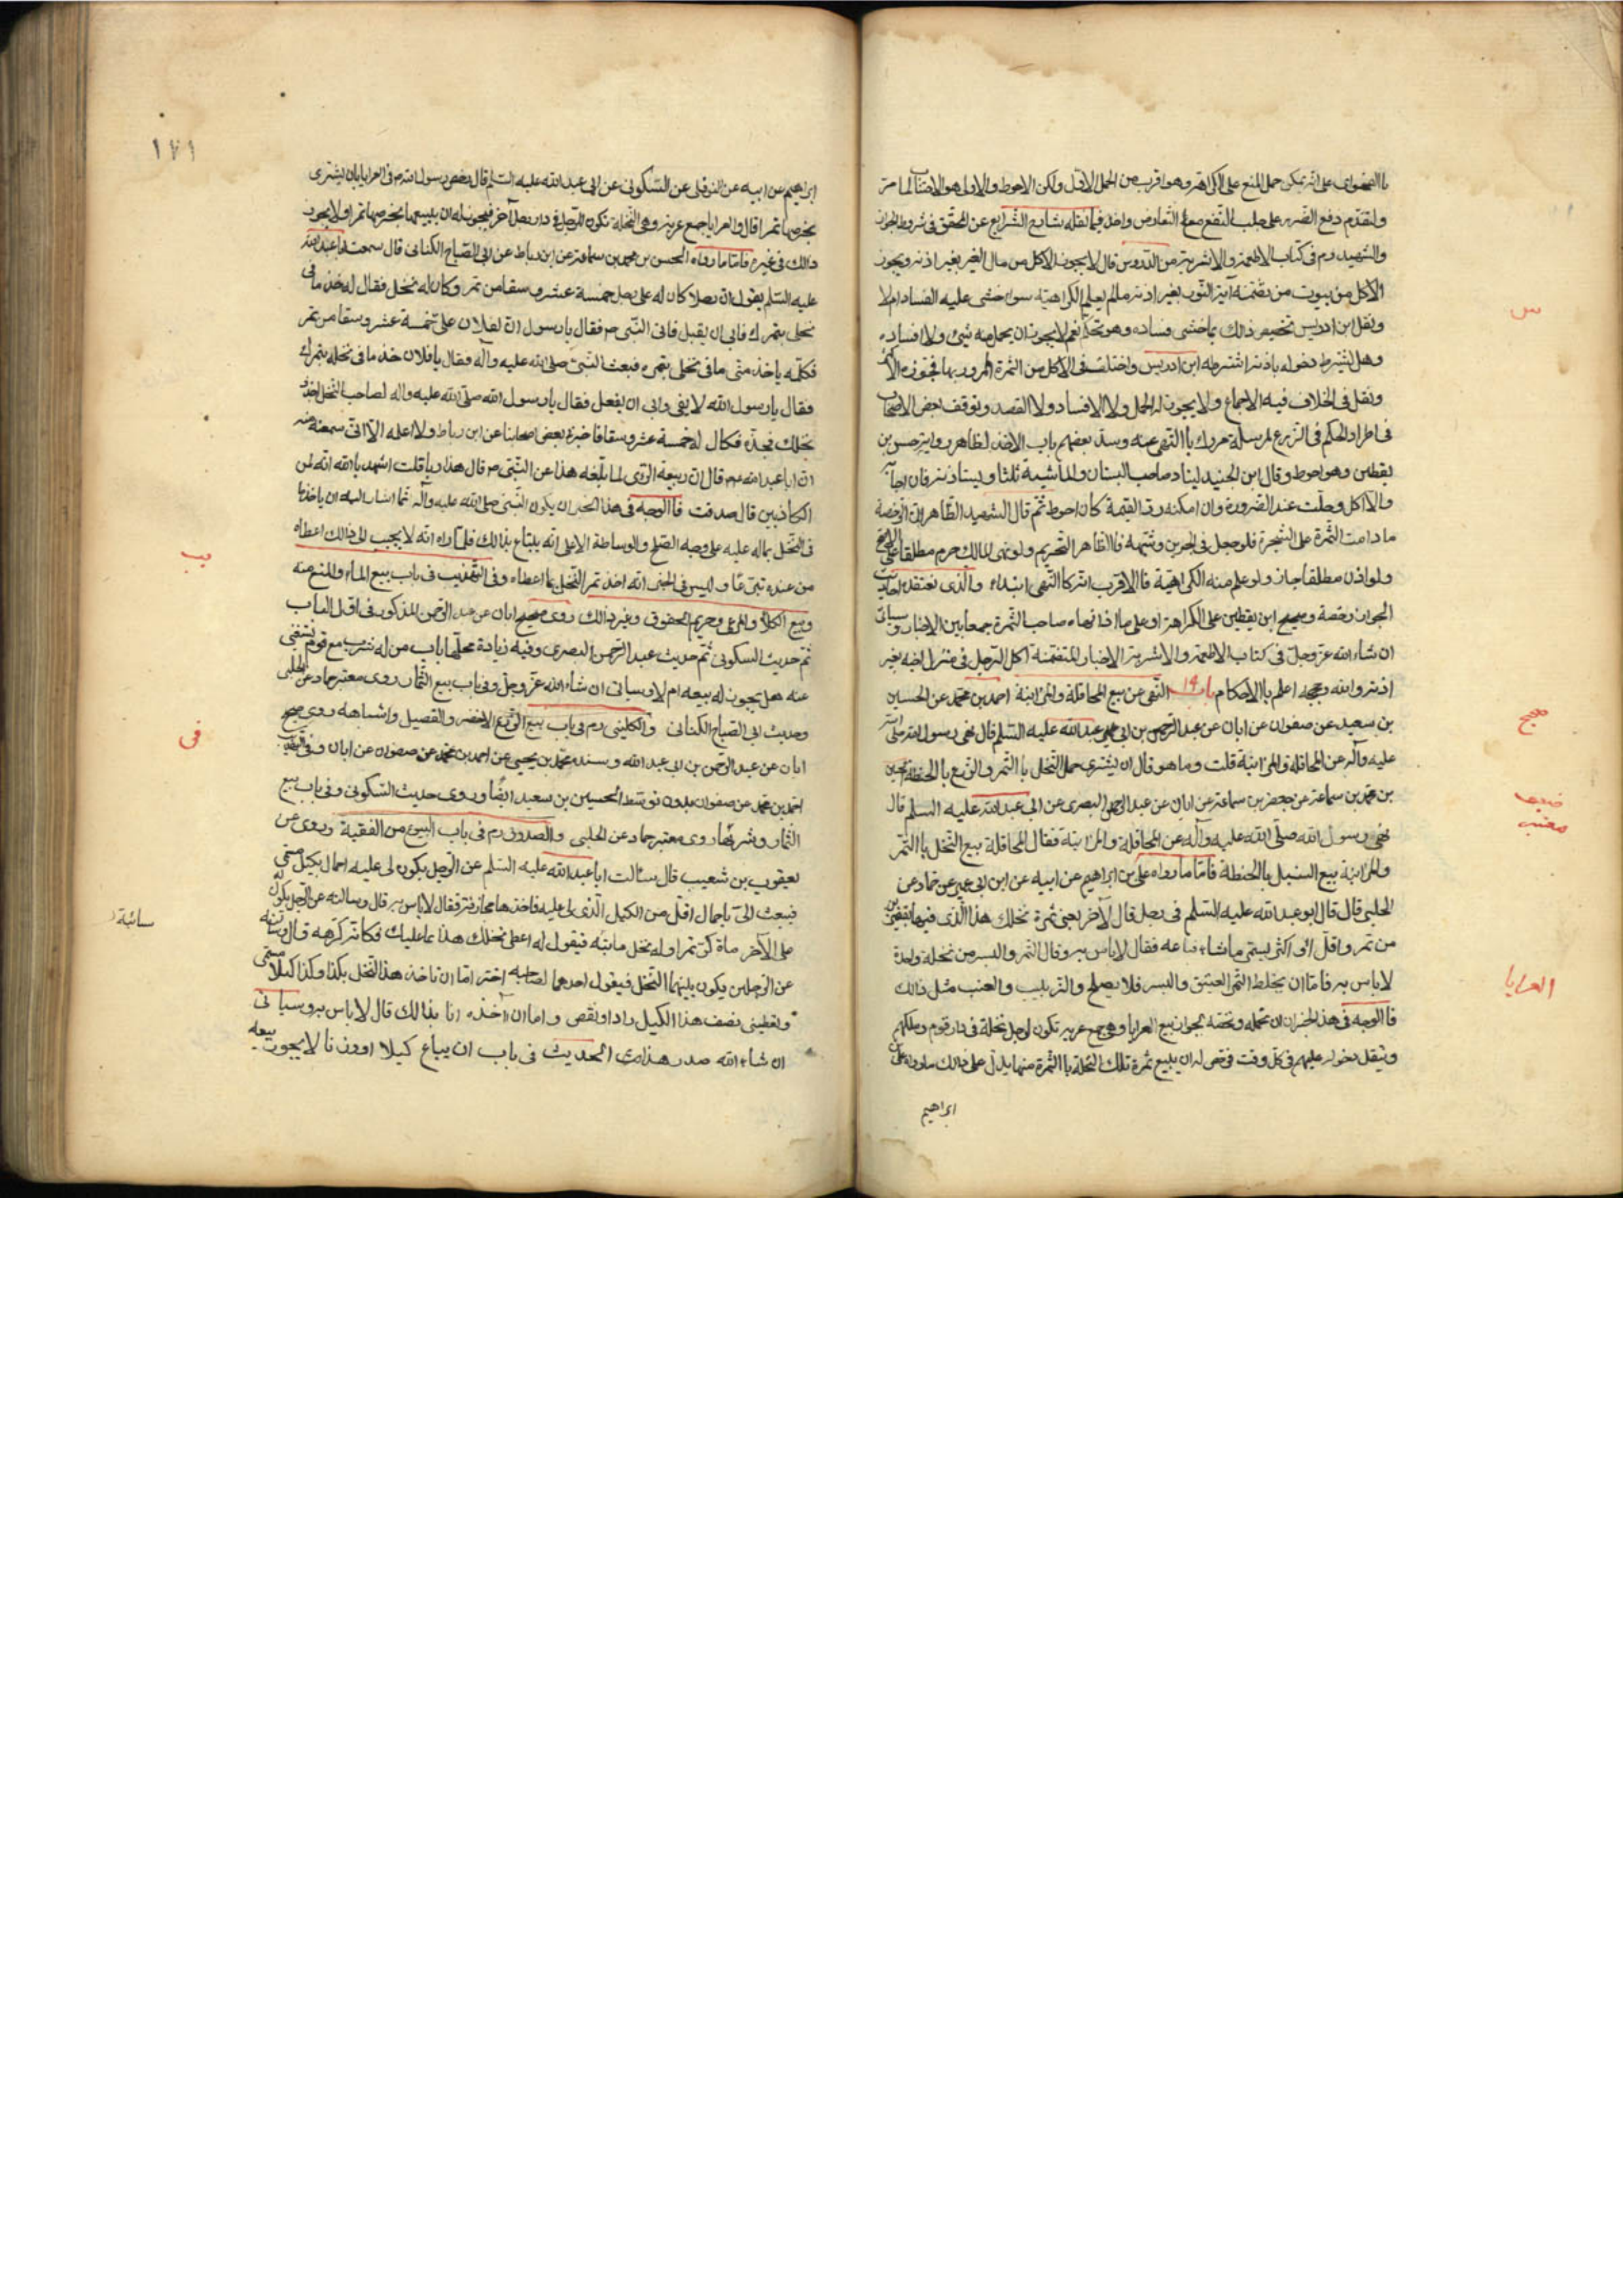 على انه يمكن حمل المنع على الكراهة وهو اقرب من الحمل الاول ولكن الاحوط والاولى هو الاجتناب لما مر
ولتقدم دفع الضرر على جلب النفع مع التعارض
والشهيد ره في كتاب الاطعمة والاشربة من الدروس قال لا يجوز الاكل من مال الغير بغير اذنه ويجوز
الاكل من بيوت من تضمنه آية النور بغير اذنه ما لم يعلم الكراهية سواء خشى عليه الفساد ام لا
ونقل ابن ادريس تخصيص ذالك بما خشى فساده وهو تحكم نعم لا يجوز ان يحمل منه شئ ولا افساده
وهل يشترط دخوله باذنه اشترطه ابن ادريس واختلف في الاكل من الثمرة الممرور بها فجوزه الاكثر
ونقل في الخلاف فيه الاجماع ولا يجوز له الحمل ولا الافساد ولا القصد وتوقف بعض الاصحاب
في اطراد الحكم في الزرع لمرسلة مروك باالنهى عنه وسد بعضهم باب الاخذ لظاهر رواية حسن بن
يقطين وهو احوط وقال ابن الجنيد ليناد صاحب البستان والماشية ثلثا ويستاذنه فان اجابه
والا اكل وحلب عند الضرورة وان امكنه رد القيمة كان احوط ثم قال الشهيد الظاهر ان الرخصة
ما دامت الثمرة على الشجرة فلو جعل في الجرين وشبهه فاالظاهر التحريم ولو نهى المالك حرم مطلقا على الاصح
ولو اذن مطلقا جاز ولو علم منه الكراهية فاالاقرب انه كاالنهى ابتداء
ان شاء الله عز وجل في كتاب الاطعمة والاشربة الاخبار المتضمنة اكل الرجل في منزل اخيه بغير
اذنه والله وحججه اعلم باالاحكام باب النهى عن بيع المحاقلة والمزابنة احمد بن محمد عن الحسين
بن سعيد عن صفوان عن ابان عن عبد الرحمن بن ابى عبد الله عليه السلم قال نهى رسول الله صلى الله
عليه وآله عن المحاقلة والمزابنة قلت وما هو قال ان يشترى حمل النخل باالتمر والزرع باالحنطة الحسن
بن محمد بن سماعة عن جعفر بن سماعة عن ابان عن عبد الرحمن البصرى عن ابى عبد الله عليه السلم قال
نهى رسول الله صلى الله عليه وآله عن المحاقلة والمزابنة فقال المحاقلة بيع النخل باالتمر
والمزابنة بيع السنبل باالحنطة فاما ما رواه على بن ابراهيم عن ابيه عن ابن ابى عمير عن حماد عن
الحلبى قال قال ابو عبد الله عليه السلم في رجل قال لآخر بعنى ثمرة نخلك هذا الذى فيها بقفيزين
من تمر واقل او اكثر يسمى ما شاء فباعه فقال لا باس به وقال التمر والبسر من نخلة واحدة
لا باس به فاما ان يخلط التمر العتيق والبسر فلا يصلح والزبيب والعنب مثل ذالك
فاالوجه في هذا الخبر ان نحمله ونخصه بجواز بيع العرايا وهى جمع عرية تكون لرجل نخلة في دار قوم وملكهم
ويثقل دخوله عليهم في كل وقت فرخص له ان يبيع ثمرة تلك النخلة باالتمرة منها يدل على ذالك ما رواه على بن
ابراهيم
صحيح
ضعيف
العرايا
١٧١
ابراهيم عن ابيه عن النوفلى عن السكونى عن ابى عبد الله عليه السلم قال رخص رسول الله ص في العرايا بان يشترى
بخرصها تمرا قال والعرايا جمع عرية وهى النخلة تكون للرجل في دار رجل آخر فيجوز له ان يبيعها بخرصها تمرا ولا يجوز
ذالك في غيره فاما ما رواه الحسن بن محمد بن سماعة عن ابن رباط عن ابى الصباح الكنانى قال سمعت ابا عبد الله
عليه السلم يقول ان رجلا كان له على رجل خمسة عشر وسقا من تمر وكان له نخل فقال له خذ ما في
نخلى بتمرك فابى ان يقبل فاتى النبى ص فقال يا رسول ان لفلان على خمسة عشر وسقا من تمر
فكلمه ياخذ منى ما في نخلى بتمره فبعث النبى صلى الله عليه وآله فقال يا فلان خذ ما في نخله بتمرك
فقال يا رسول الله لا يفى وابى ان يفعل فقال يا رسول الله صلى الله عليه واله لصاحب النخل اجذذ
نخلك فجذه فكال له خمسة عشر وسقا فاخبرنى بعض اصحابنا عن ابن رباط ولا اعلمه الا انى سمعته منه
ان ابا عبد الله ع قال ان ربيعة الراى لما بلغه هذا عن النبى ص قال هذا ربا قلت اشهد باالله انه لمن
الكاذبين قال صدقت فاالوجه في هذا الخبر ان يكون النبى صلى الله عليه وآله انما اشار اليه ان ياخذ ما
في النخل بماله عليه على وجه الصلح والوساطة الا على انه يبتاع بذالك فلما راه انه لا يجيب الى ذالك اعطاه
من عنده تبرعا وليس في الخبر انه اخذ تمر النخل بما اعطاه وفي التهذيب في باب بيع الماء والمنع عنه
وبيع الكلاء والمرعى وحريم الحقوق وغير ذالك روى صحيح ابان عن عبد الرحمن المذكور في اول الباب
ثم حديث السكونى ثم حديث عبد الرحمن البصرى وفيه زيادة محلها باب من له شرب مع قوم يستغنى
عنه هل يجوز له بيعه ام لا وسياتى ان شاء الله عز وجل وفي باب بيع الثمار روى معتبر حماد عن الحلبى
وحديث ابى الصباح الكنانى والكلينى ره في باب بيع الزرع الاخضر والقصيل واشباهه روى صحيح
ابان عن عبد الرحمن بن ابى عبد الله وسنده محمد بن يحيى عن احمد بن محمد عن صفوان عن ابان وفي التهذيب
احمد بن محمد عن صفوان بدون توسط الحسين بن سعيد ايضا وروى حديث السكونى وفي باب بيع
الثمار وشرائها روى معتبر حماد عن الحلبى والصدوق ره في باب البيوع من الفقيه وروى عن
يعقوب بن شعيب قال سالت ابا عبد الله عليه السلم عن الرجل يكون لى عليه احمال بكيل مسمى
فيبعث الى باحمال اقل من الكيل الذى لى عليه فاخذها مجازفة فقال لا باس به قال وسالته عن الرجل يكون له
على الآخر ماة كر تمرا وله نخل فياتيه فيقول له اعطنى نخلك هذا بما عليك فكانه كرهه قال وسالته
عن الرجلين يكون بينهما النخل فيقول احدهما لصاحبه اختر اما ان تاخذ هذا النخل بكذا وكذا كيلا مسمى
وتعطينى نصف هذا الكيل زاد او نقص واما ان آخذه انا بذالك قال لا باس به وسياتى
ان شاء الله صدر هذا الحديث في باب ان يباع كيلا او وزنا لا يجوز بيعه
يب
فى